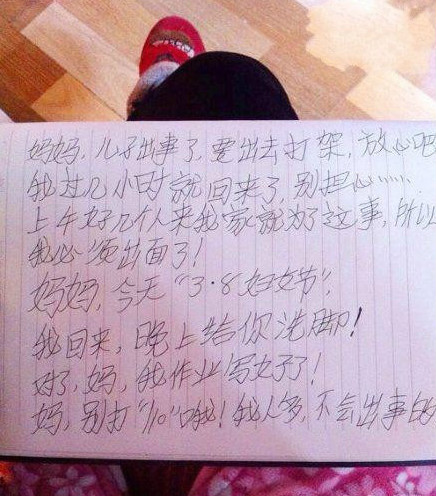 妈妈，儿子出事了，要出去打架，放心吧
我过几小时就回来了，别担心……
上午好几个人来我家就为了这事，所以
我必须出面了！
妈妈，今天“3·8妇女节”，
我回来，晚上给你洗脚！
对了，妈，我作业写好了！
妈，别打“110”哦！我人多，不会出事的